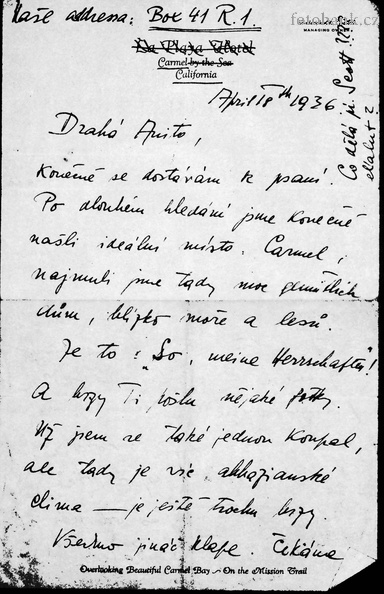 fotobank.cz
Naše adressa: Box 41 R.1.
La Playa Hotel
Carmel by the Sea
California
MANAGING OWNER
April 18th 1936
Co dělá p. Scott?
Drahá Anito,
konečně se dostávám k psaní.
Po dlouhém hledání jsme konečně
našli ideální místo: Carmel,
najmuli jsme tady moc gemütlich
dům, blízko moře a lesů.
Je to: "So, meine Herrschaften!
A brzy Ti pošlu nějaké fotky.
Už jsem se také jednou koupal,
ale tady je víc abbazianské
clima – je ještě trochu brzy.
Všechno jináč klape. Čekáme
Overlooking Beautiful Carmel Bay – On the Mission Trail